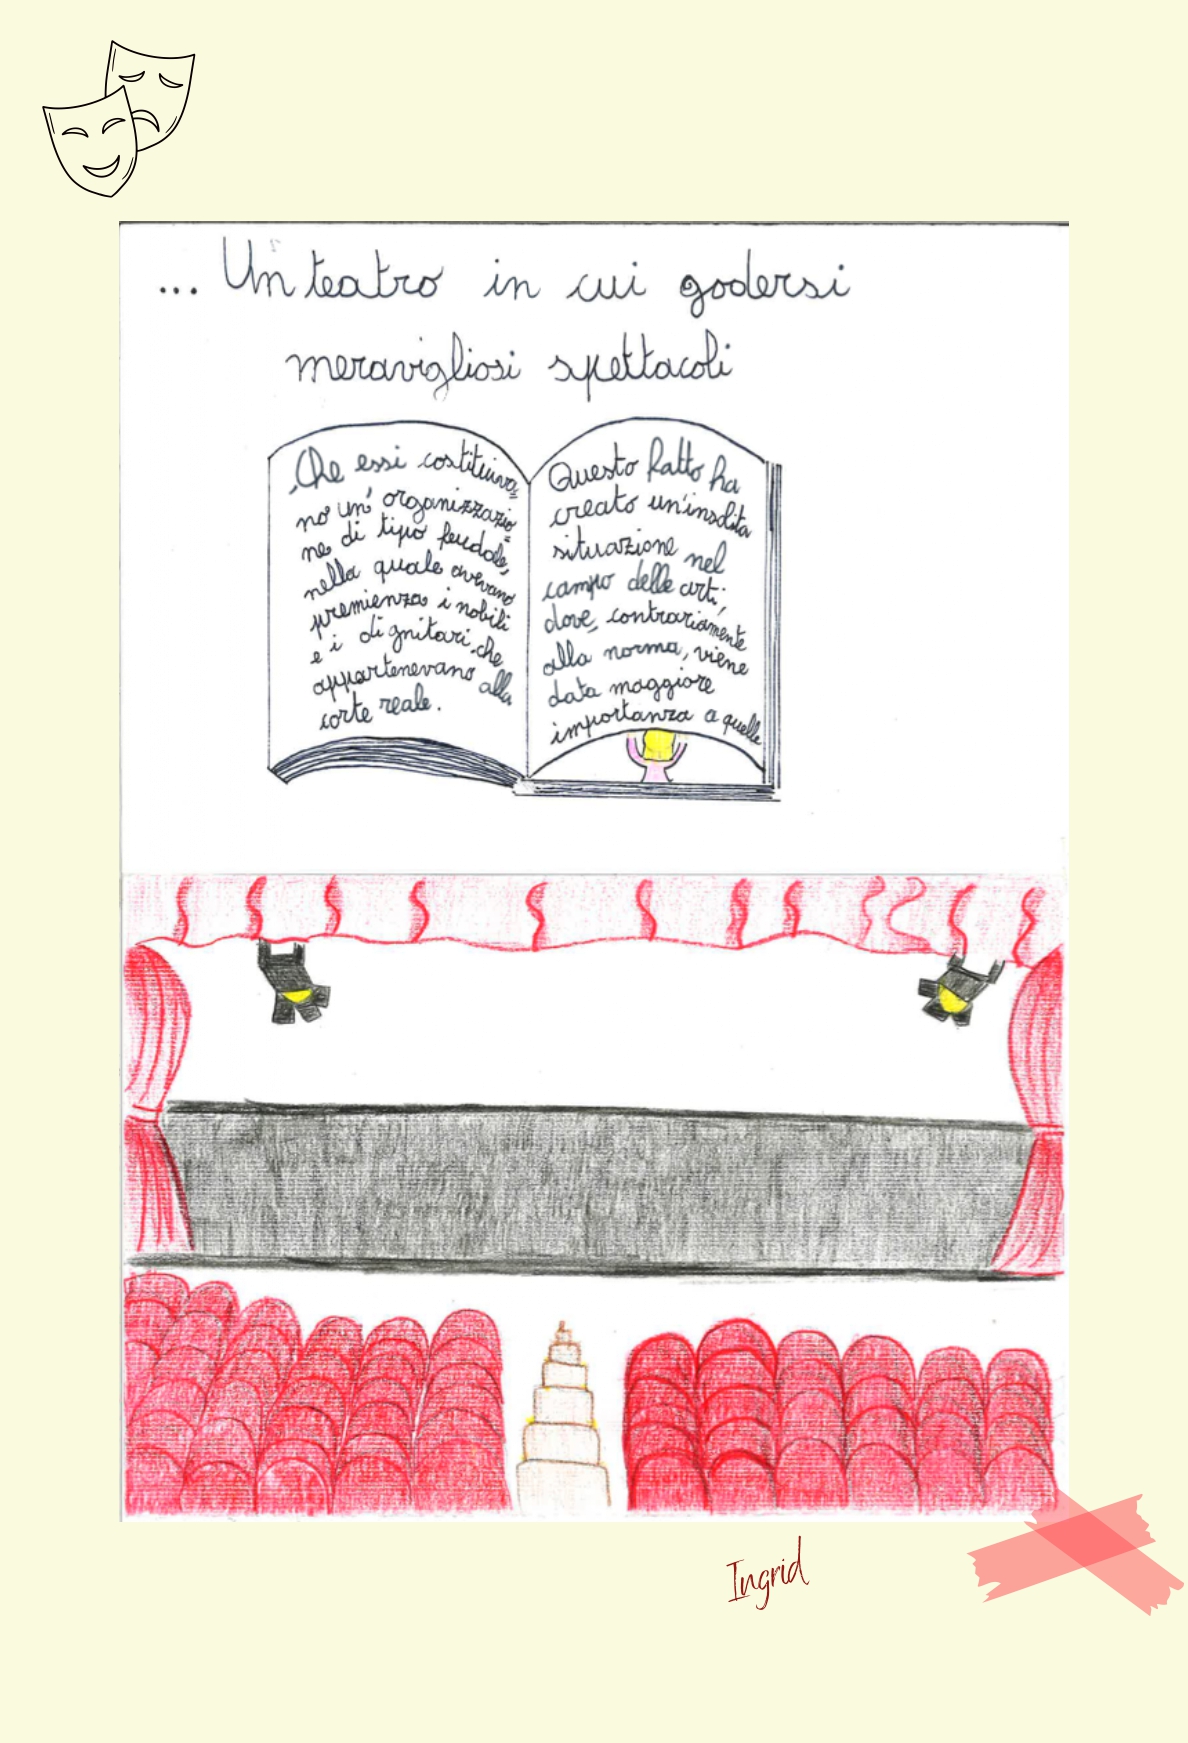 ... Un teatro in cui godersi
meravigliosi spettacoli
Che essi costituiva=
no un' organizzazio
ne di tipo feudale,
nella quale avevano
premienza i nobili
e i dignitari, che
appartenevano alla
corte reale.
Questo fatto ha
creato un'insolita
situazione nel
campo delle arti,
dove, contrariamente
alla norma, viene
data maggiore
importanza a quelle
Ingrid